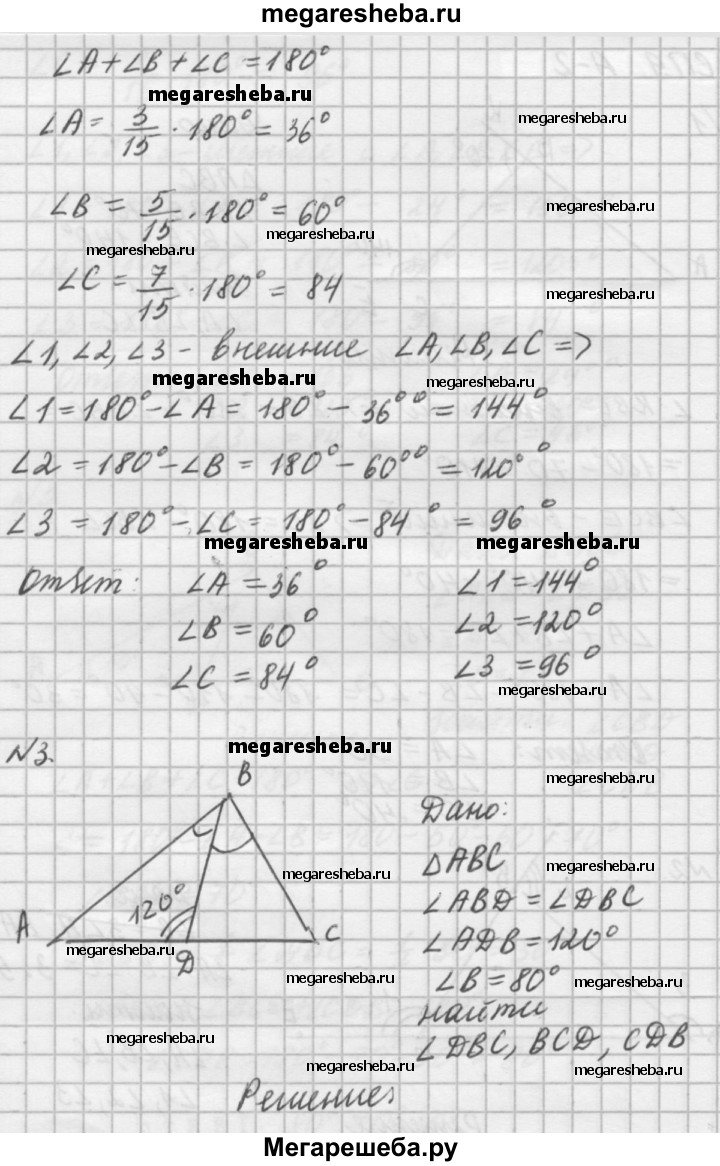 megaresheba.ru
∠A+∠B+∠C=180°
megaresheba.ru
∠A= 3/15 · 180°= 36°
megaresheba.ru
∠B = 5/15 · 180°= 60°
megaresheba.ru
megaresheba.ru
megaresheba.ru
∠C = 7/15 · 180°= 84
megaresheba.ru
∠1, ∠2, ∠3 - внешние ∠A, ∠B, ∠C =>
megaresheba.ru
megaresheba.ru
∠1=180°-∠A= 180°- 36°° = 144°
∠2 =180°-∠B = 180°- 60°° =120°°
∠3 =180°-∠C= 180°-84° = 96°
megaresheba.ru
megaresheba.ru
Ответ: ∠A =36° ∠1=144°
∠B =60° ∠2 =120°
∠C =84° ∠3 =96°
megaresheba.ru
N3.
megaresheba.ru
megaresheba.ru
B
Дано:
megaresheba.ru
megaresheba.ru
△ABC
120°
∠ABD = ∠DBC
A
C
∠ADB=120°
megaresheba.ru
D
∠B=80°
megaresheba.ru
megaresheba.ru
найти
megaresheba.ru
∠DBC, BCD, CDB
megaresheba.ru
megaresheba.ru
Решение:
Мегарешеба.ру